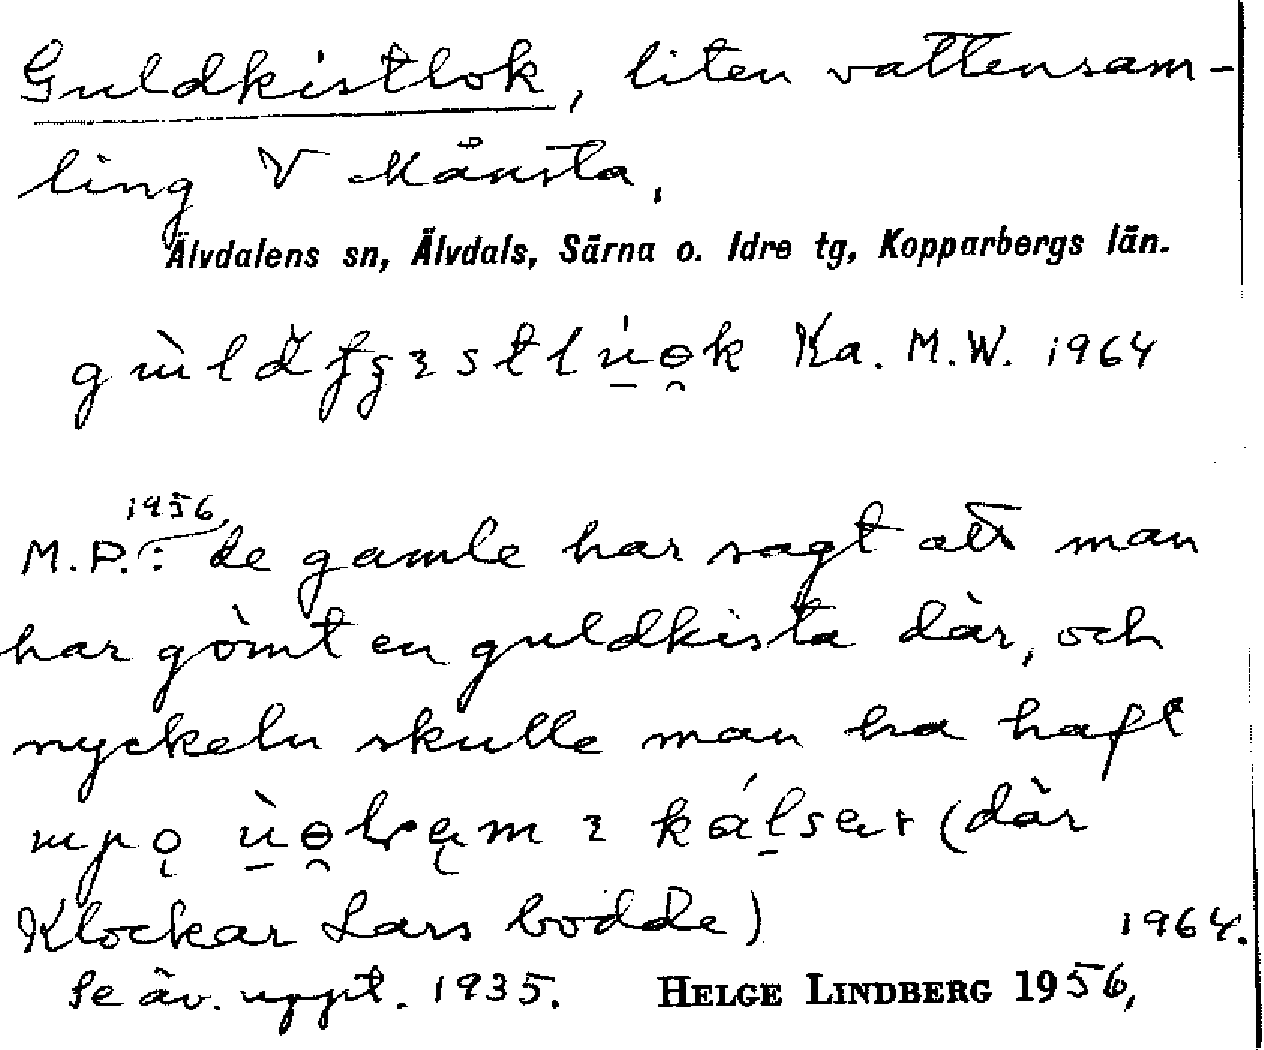 Guldkistlok, liten vattensam-
ling V Månsta,
Älvdalens sn, Älvdals, Särna o. Idre tg, Kopparbergs län.
Ka. M.W. 1964
1956,
M.P.: de gamle har sagt att man
har gömt en guldkista där, och
nyckeln skulle man ha haft
(där
Klockar Lars bodde) 1964.
Se äv. uppt. 1935. HELGE LINDBERG 1956,